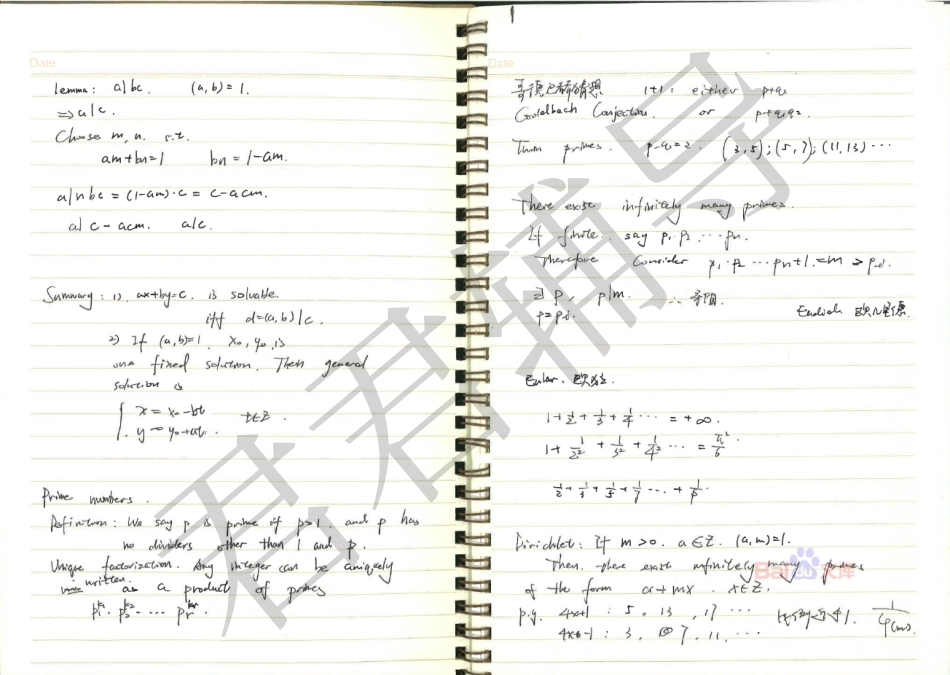 Date
Lemma: a|bc. (a,b)=1.
⇒ a|c.
Choose m, n. s.t.
am+bn=1 bn=1-am.
a|nbc = (1-am)·c = c-acm.
a| c-acm. a|c.
Summary: 1). ax+by=c. is solvable.
iff d=(a,b)|c.
2) If (a,b)=1. x₀, y₀ is
one fixed solution. Then general
solution is
{ x = x₀-bt
y = y₀+at. t∈Z.
Prime numbers.
Definition: We say p is prime if p>1. and p has
no dividers other than 1 and p.
Unique factorization. Any integer can be uniquely
written as a product of primes
Date
哥德巴赫猜想 1+1: either p+q
Goldbach Conjection. or p+q₁q₂.
Twin primes. p-q=2. (3,5);(5,7);(11,13)···
There exist infinitely many primes.
If finite. say p₁·p₂···pₙ.
Therefore Consider p₁·p₂···pₙ+1=m > pᵢ.
∃ p, p|m.
p=pᵢ. ∴ 矛盾
欧几里德
Euler. 欧拉.
1+1/2+1/3+1/4··· = +∞.
1+1/2²+1/3²+1/4²··· = π²/6.
1/2+1/3+1/5+1/7···+1/p.
Dirichlet: If m>0. a∈Z. (a,m)=1.
Then. there exist infinitely many primes
of the form a+mx. x∈Z.
4x+1: 5, 13, 17 ···
4x-1: 3, 7, 11, ···
1/φ(m).
君君辅导
Bai 文库